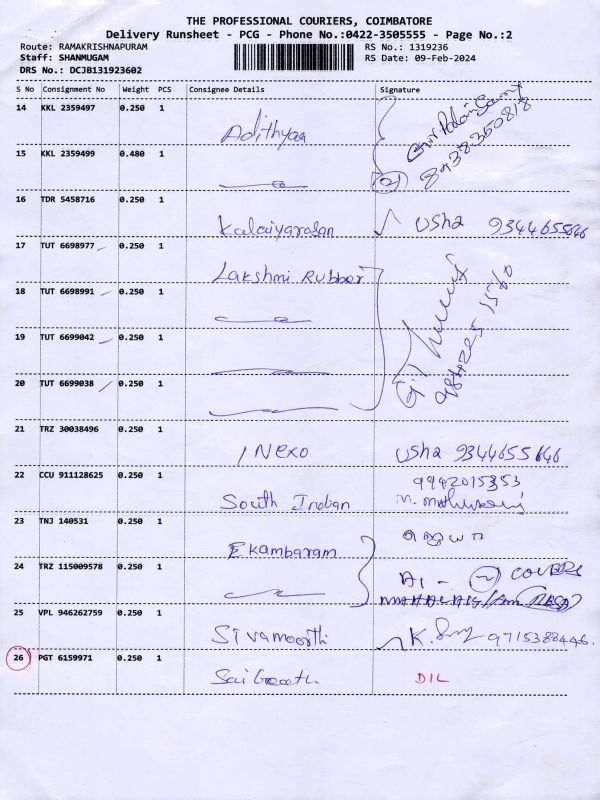 THE PROFESSIONAL COURIERS, COIMBATORE
Delivery Runsheet - PCG - Phone No.:0422-3505555 - Page No.:2
Route: RAMAKRISHNAPURAM RS No.: 1319236
Staff: SHANMUGAM RS Date: 09-Feb-2024
DRS No.: DCJB131923602
S No Consignment No Weight PCS Consignee Details Signature
14 KKL 2359497 0.250 1
Adithyan
15 KKL 2359499 0.480 1
(2) 8438350818
16 TDR 5458716 0.250 1
Kalaiyarasan Usha 9344655646
17 TUT 6698977 0.250 1
Lakshmi Rubber
18 TUT 6698991 0.250 1
19 TUT 6699042 0.250 1
20 TUT 6699038 0.250 1
21 TRZ 30038496 0.250 1
INexo Usha 9344655646
22 CCU 911128625 0.250 1
9942015353
South Indian
23 TNJ 140531 0.250 1
Ekambaram
24 TRZ 115009578 0.250 1
A1 - (2) COVERS
25 VPL 946262759 0.250 1
Sivamoorthi 9715388446.
26 PGT 6159971 0.250 1
DIL